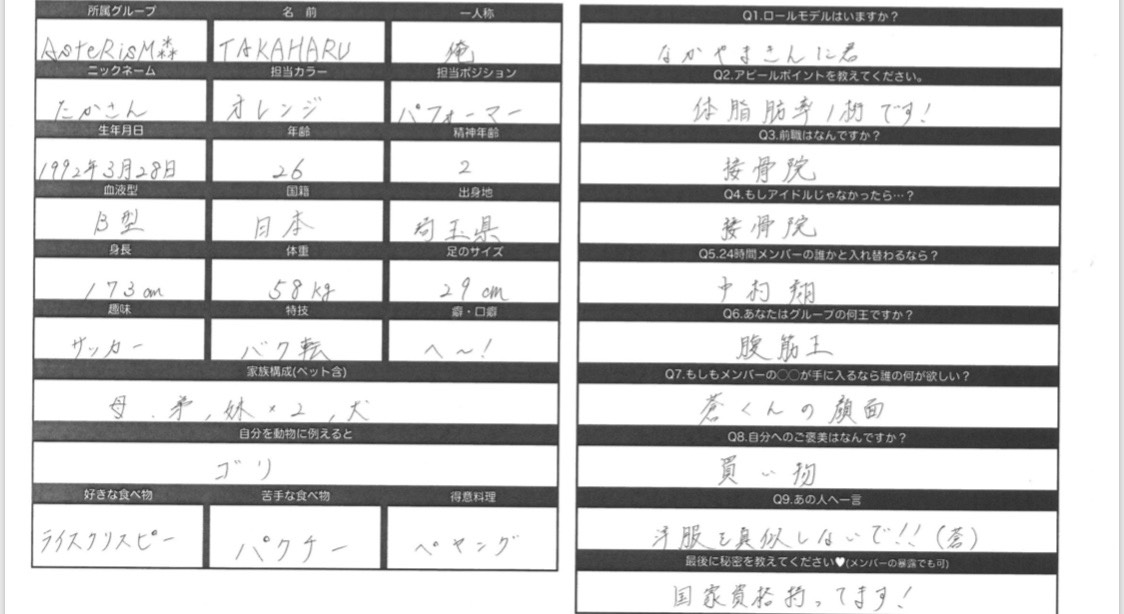 所属グループ 名前 一人称
AsteRisM森 TAKAHARU 俺
ニックネーム 担当カラー 担当ポジション
たかさん オレンジ パフォーマー
生年月日 年齢 精神年齢
1992年3月28日 26 2
血液型 国籍 出身地
B型 日本 埼玉県
身長 体重 足のサイズ
173cm 58kg 29cm
趣味 特技 癖・口癖
サッカー バク転 へ〜!
家族構成(ペット含)
母、弟、妹×2、犬
自分を動物に例えると
ゴリ
好きな食べ物 苦手な食べ物 得意料理
ライスクリスピー パクチー ペヤング
Q1.ロールモデルはいますか?
なかやまきんに君
Q2.アピールポイントを教えてください。
体脂肪率1桁です!
Q3.前職はなんですか?
接骨院
Q4.もしアイドルじゃなかったら…?
接骨院
Q5.24時間メンバーの誰かと入れ替わるなら?
中村翔
Q6.あなたはグループの何王ですか?
腹筋王
Q7.もしもメンバーの○○が手に入るなら誰の何が欲しい?
蒼くんの顔面
Q8.自分へのご褒美はなんですか?
買い物
Q9.あの人へ一言
洋服を真似しないで!!(蒼)
最後に秘密を教えてください♥(メンバーの暴露でも可)
国家資格持ってます!